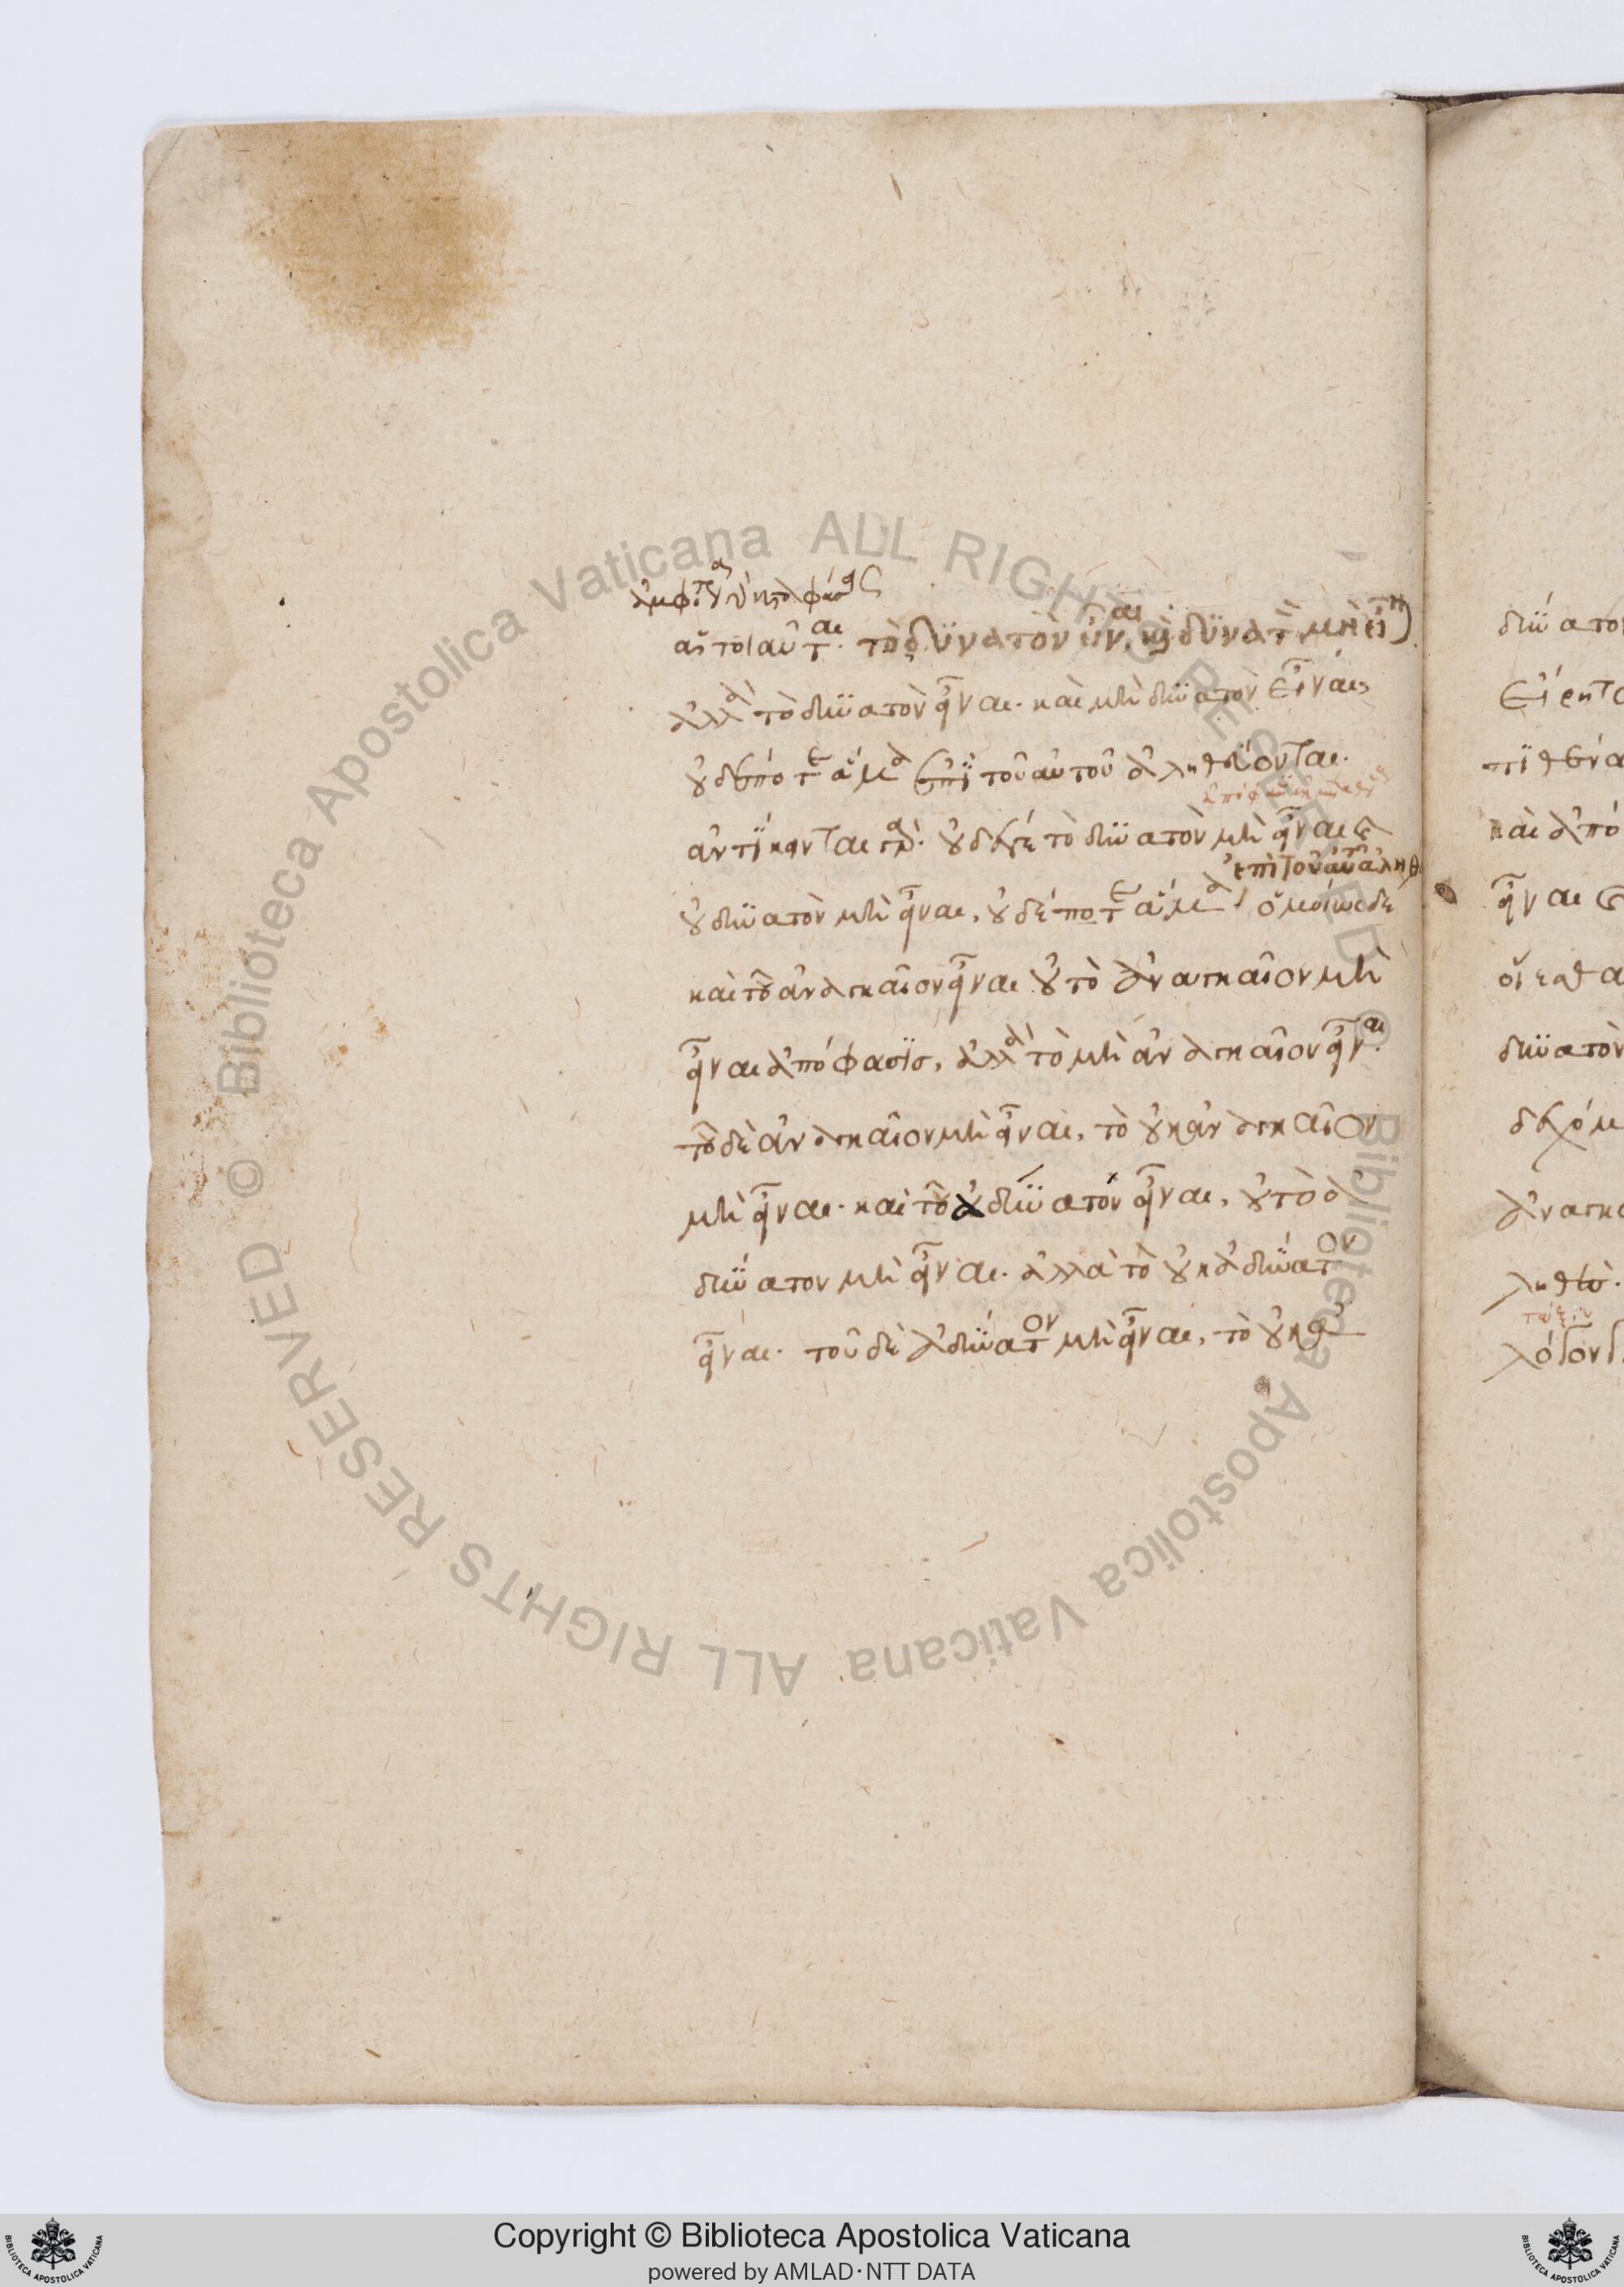 τὸ δυνατὸν εἶναι καὶ δυνατὸν μὴ εἶναι
ἀλλὰ τὸ δυνατὸν εἶναι· καὶ μὴ δυνατὸν εἶναι,
οὐδέποτε ἅμα ἐπὶ τοῦ αὐτοῦ ἀληθεύονται.
ἀντίκεινται γάρ. οὐδέ γε τὸ δυνατὸν μὴ εἶναι καὶ
ἐπὶ τοῦ αὐτοῦ ἀληθ
οὐ δυνατὸν μὴ εἶναι, οὐδέποτε ἅμα ὁμοίως δὲ
καὶ τοῦ ἀναγκαῖον εἶναι οὐ τὸ ἀναγκαῖον μὴ
εἶναι ἀπόφασις, ἀλλὰ τὸ μὴ ἀναγκαῖον εἶναι.
τοῦ δὲ ἀναγκαῖον μὴ εἶναι, τὸ οὐκ ἀναγκαῖον
μὴ εἶναι. καὶ τοῦ ἀδύνατον εἶναι, οὐ τὸ ἀ
δύνατον μὴ εἶναι. ἀλλὰ τὸ οὐκ ἀδύνατον
εἶναι. τοῦ δὲ ἀδύνατον μὴ εἶναι, τὸ οὐκ ἀ
δύνατο
εἴρητ
τιθένα
καὶ ἀπό
εἶναι
οἴεσθα
δυνατὸν
δεχόμ
ἀναγκ
ληθὲς.
λέγοντ
Biblioteca Apostolica Vaticana ALL RIGHTS RESERVED ©
Biblioteca Apostolica Vaticana ALL RIGHTS RESERVED ©
Copyright © Biblioteca Apostolica Vaticana
powered by AMLAD·NTT DATA
BIBLIOTECA APOSTOLICA VATICANA
BIBLIOTECA APOSTOLICA VATICANA